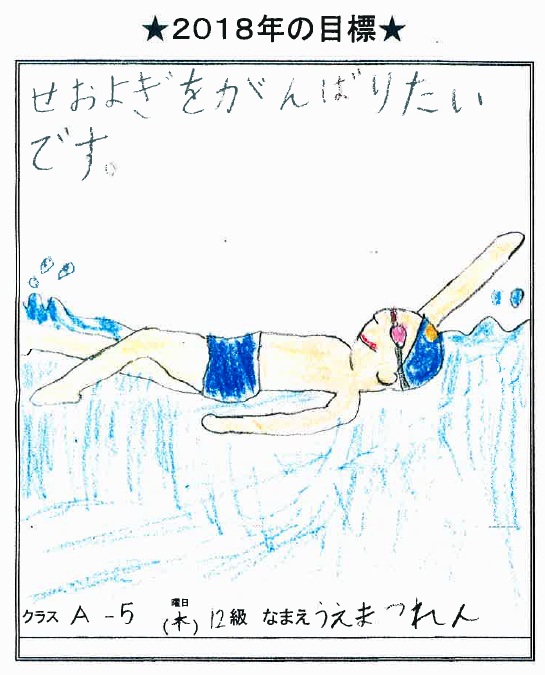 ★2018年の目標★
せおよぎをがんばりたい
です。
クラス A-5 曜日(木) 12級 なまえ うえまつれん